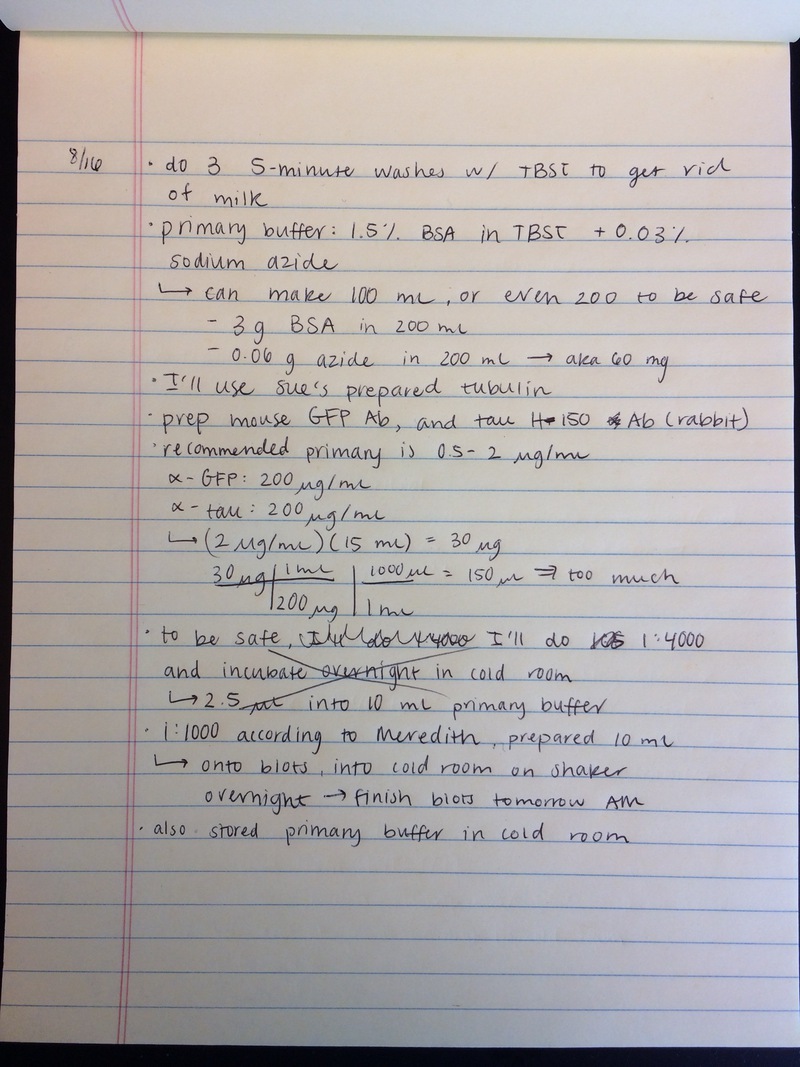 8/16 · do 3 5-minute washes w/ TBST to get rid
of milk
· primary buffer: 1.5% BSA in TBST + 0.03%
sodium azide
↳ can make 100 mL, or even 200 to be safe
- 3 g BSA in 200 mL
- 0.06 g azide in 200 mL → aka 60 mg
· I'll use Sue's prepared tubulin
· prep mouse GFP Ab, and tau H-150 Ab (rabbit)
· recommended primary is 0.5-2 μg/mL
α-GFP: 200 μg/mL
α-tau: 200 μg/mL
↳ (2 μg/mL)(15 mL) = 30 μg
30 μg | 1 mL | 1000 μL = 150 μL ⇒ too much
| 200 μg | 1 mL
· to be safe, I'll do 1:4000
and incubate overnight in cold room
↳ 2.5 μL into 10 mL primary buffer
· 1:1000 according to Meredith, prepared 10 mL
↳ onto blots, into cold room on shaker
overnight → finish blots tomorrow AM
· also stored primary buffer in cold room